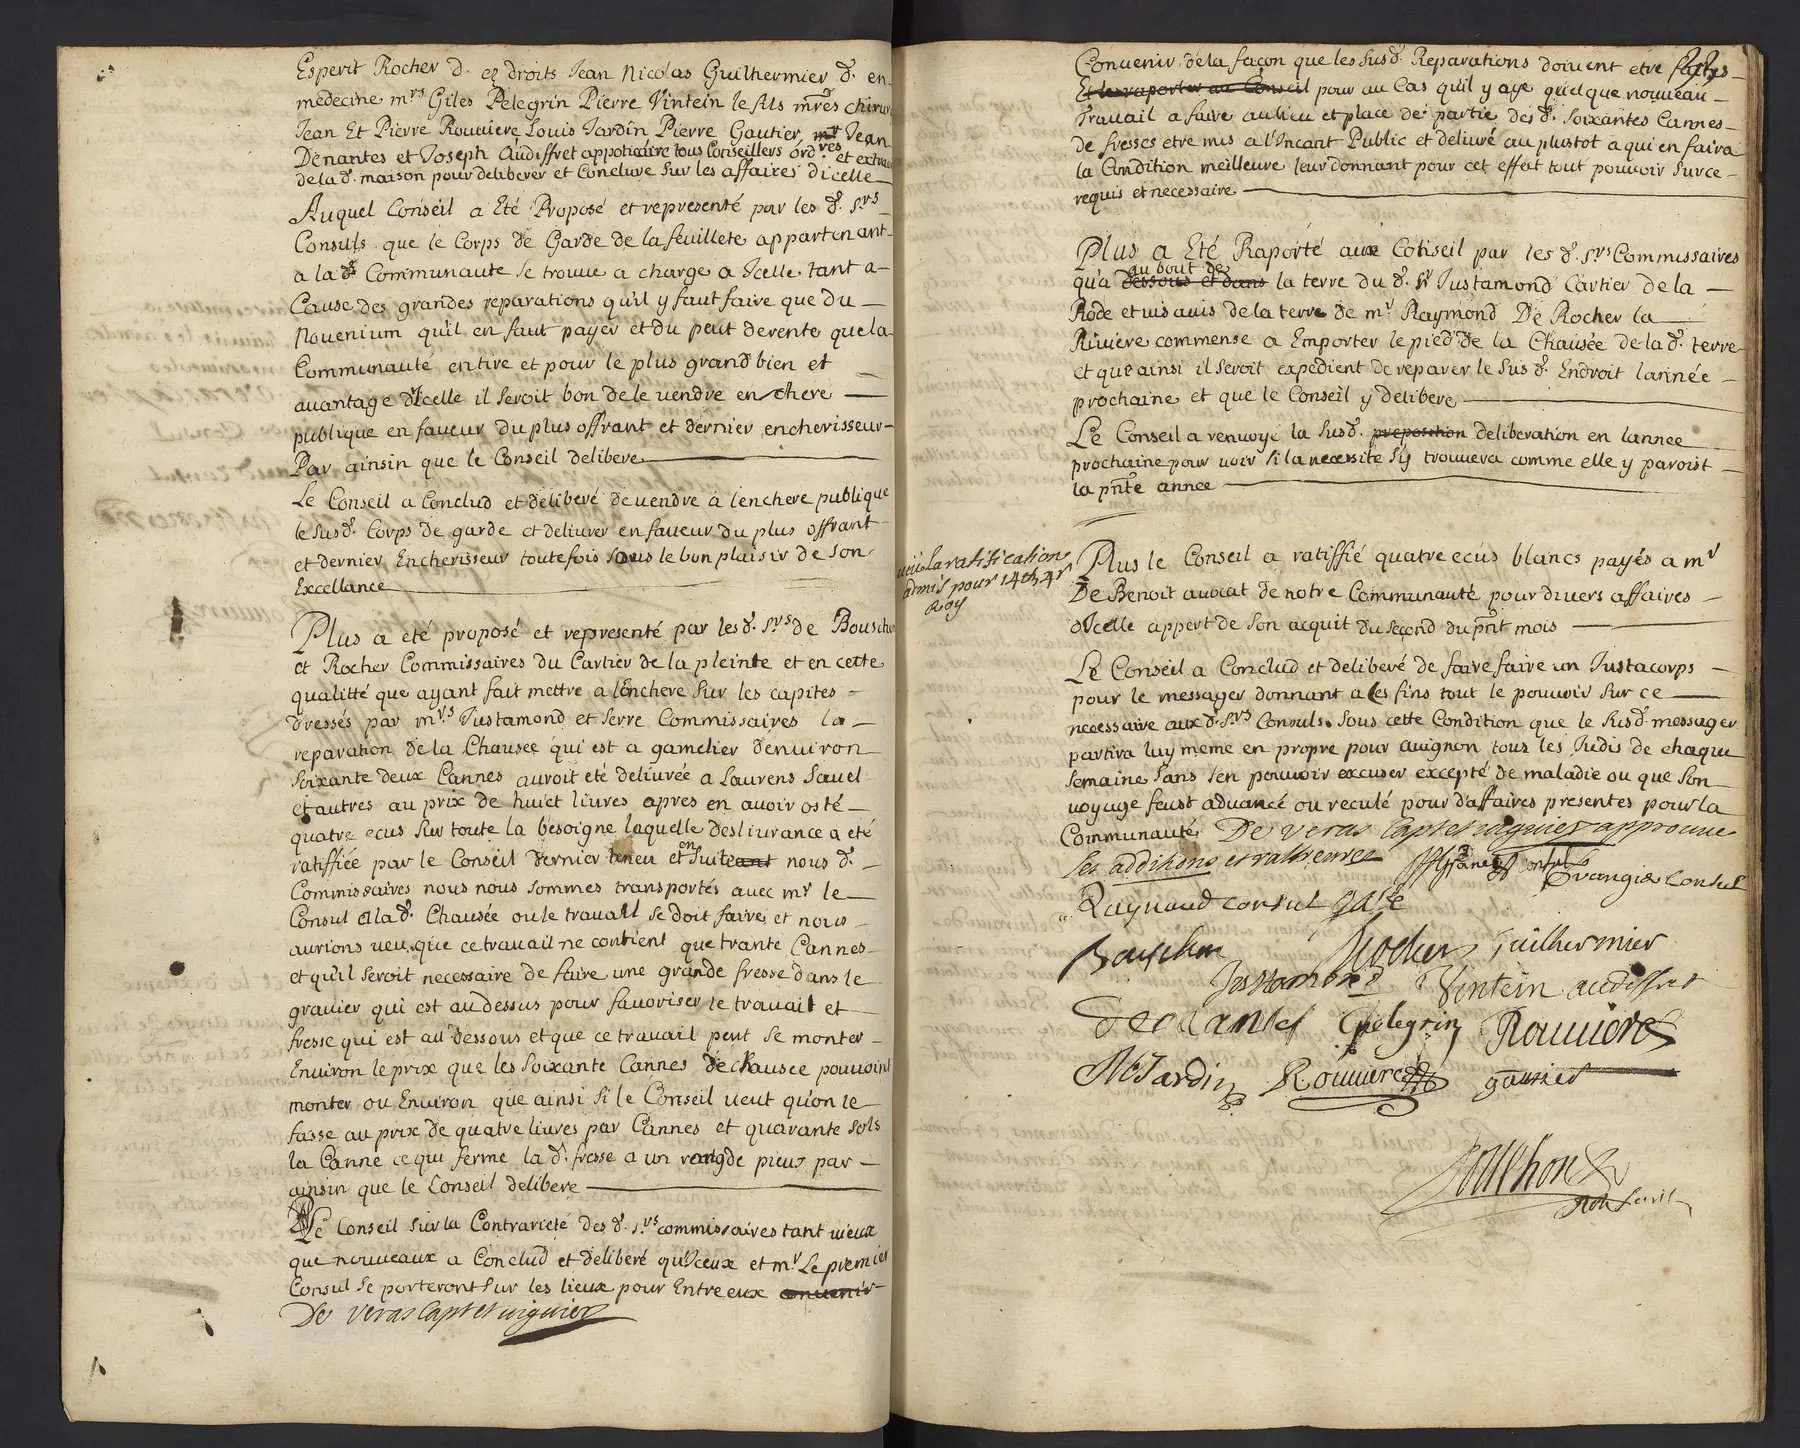 Esperit Rocher d. ez droits Jean Nicolas Guilhermier d. en
medecine mrs Giles Pelegrin Pierre Vintein le fils mres chirur
Jean Et Pierre Rouviere Louis Jardin Pierre Gautier mr Jean
Denantes et Joseph Audiffret appoticaire tous Conseillers ordres et extrao
de la d. maison pour deliberer et Conclure Sur les affaires dicelle
Auquel Conseil a Eté Proposé et representé par les d. srs
Consuls que le Corps de Garde de la feuillete appartenant
a la de Communaute Se trouve a charge a Icelle tant a
Cause des grandes reparations qu'il y faut faire que du
Novenium qu'il en faut payer et du peut de rente que la
Communauté en tire et pour le plus grand bien et
avantage dIcelle il Seroit bon de le vendre en chere
publique en faveur du plus offrant et dernier encherisseur
Par ainsin que le Conseil delibere
Le Conseil a Conclud et deliberé de vendre à lenchere publique
le Susd. Corps de garde et delivrer en faveur du plus offrant
et dernier Encherisseur toutefois Sous le bon plaisir de Son
Excellance
Plus a eté proposé et representé par les d. srs de Bouschon
et Rocher Commissaires du Cartier de la pleinte et en cette
qualitté que ayant fait mettre a lEnchere Sur les capites
dressés par mrs Justamond et Serre Commissaires la
reparation de la Chausee qui est a gamelier denviron
Soixante deux Cannes auroit eté delivrée a Laurens Sauel
et autres au prix de huict livres apres en avoir osté
quatre ecus Sur toute la besoigne laquelle deslivrance a eté
ratiffiée par le Conseil dernier teneu et en Suiteant nous d.
Commissaires nous nous Sommes transportés avec mr le
Consul a la d. Chausée ou le travail Se doit faire et nous
aurions veu que ce travail ne contient que trante Cannes
et qu'il Seroit necessaire de faire une grande fresse dans le
gravier qui est au dessus pour favoriser le travail et
fresse qui est au dessous et que ce travail peut Se monter
Environ le prix que les Soixante Cannes de chausee pouvoint
monter ou Environ que ainsi Si le Conseil veut qu'on le
fasse au prix de quatre livres par Cannes et quarante Sols
la Canne ce qui ferme la d. fresse a un rang de pieux par
ainsin que le Conseil delibere
Le Conseil Sur la Contrarieté des d. srs commissaires tant vieux
que nouveaux a Conclud et deliberé qu'Iceux et mr Le premier
Consul Se porteront Sur les lieux pour Entre eux convenir
De Veras Capt et viguier
Convenir de la façon que les Susd. Reparations doivent etre faites
Et le raporter au Conseil pour au Cas qu'il y aye quelque nouveau
Travail a faire au lieu et place de partie des d. Soixantes Cannes
de fresses etre mis a l'Incant Public et delivré au plustot a qui en faira
la Condition meilleure leur donnant pour cet effet tout pouvoir Sur ce
requis et necessaire
Plus a Eté Raporté aux Conseil par les d. srs Commissaires
qu'a dessous et dans au bout de la terre du d. Sr Justamond Cartier de la
Rode et vis avis de la terre de mr Raymond De Rocher la
Riviere commense a Emporter le pied de la Chausée de la d. terre
et que ainsi il Seroit expedient de reparer le Susd. Endroit lannée
prochaine et que le Conseil y delibere
Le Conseil a renvoyé la Susd. proposition deliberation en lannee
prochaine pour voir Si la necessite Sy trouvera comme elle y paroist
la pnte annee
veu la ratification
admis pour 14 #
Roy
Plus le Conseil a ratiffié quatre ecús blancs payés a mr
De Benoit avocat de notre Communauté pour divers affaires
dIcelle appert de Son acquit du Second du pnt mois
Le Conseil a Conclud et deliberé de faire faire un Justacorps
pour le messager donnant a ces fins tout le pouvoir Sur ce
necessaire aux d. srs Consuls Sous cette Condition que le Susd. messager
partira luy meme en propre pour avignon tous les Judis de chaque
Semaine Sans Sen pouvoir excuser excepté de maladie ou que Son
voyage feust advancé ou reculé pour d'affaires presentes pour la
Communauté De Veras Capt et viguier approuve
les additions et
Evangie Consul
Raynaud consul
Bouschon Rocher Guilhermier
Justamond Vintein audiffret
Denantes Pelegrin Rouviere
Jardin Rouviere gautier